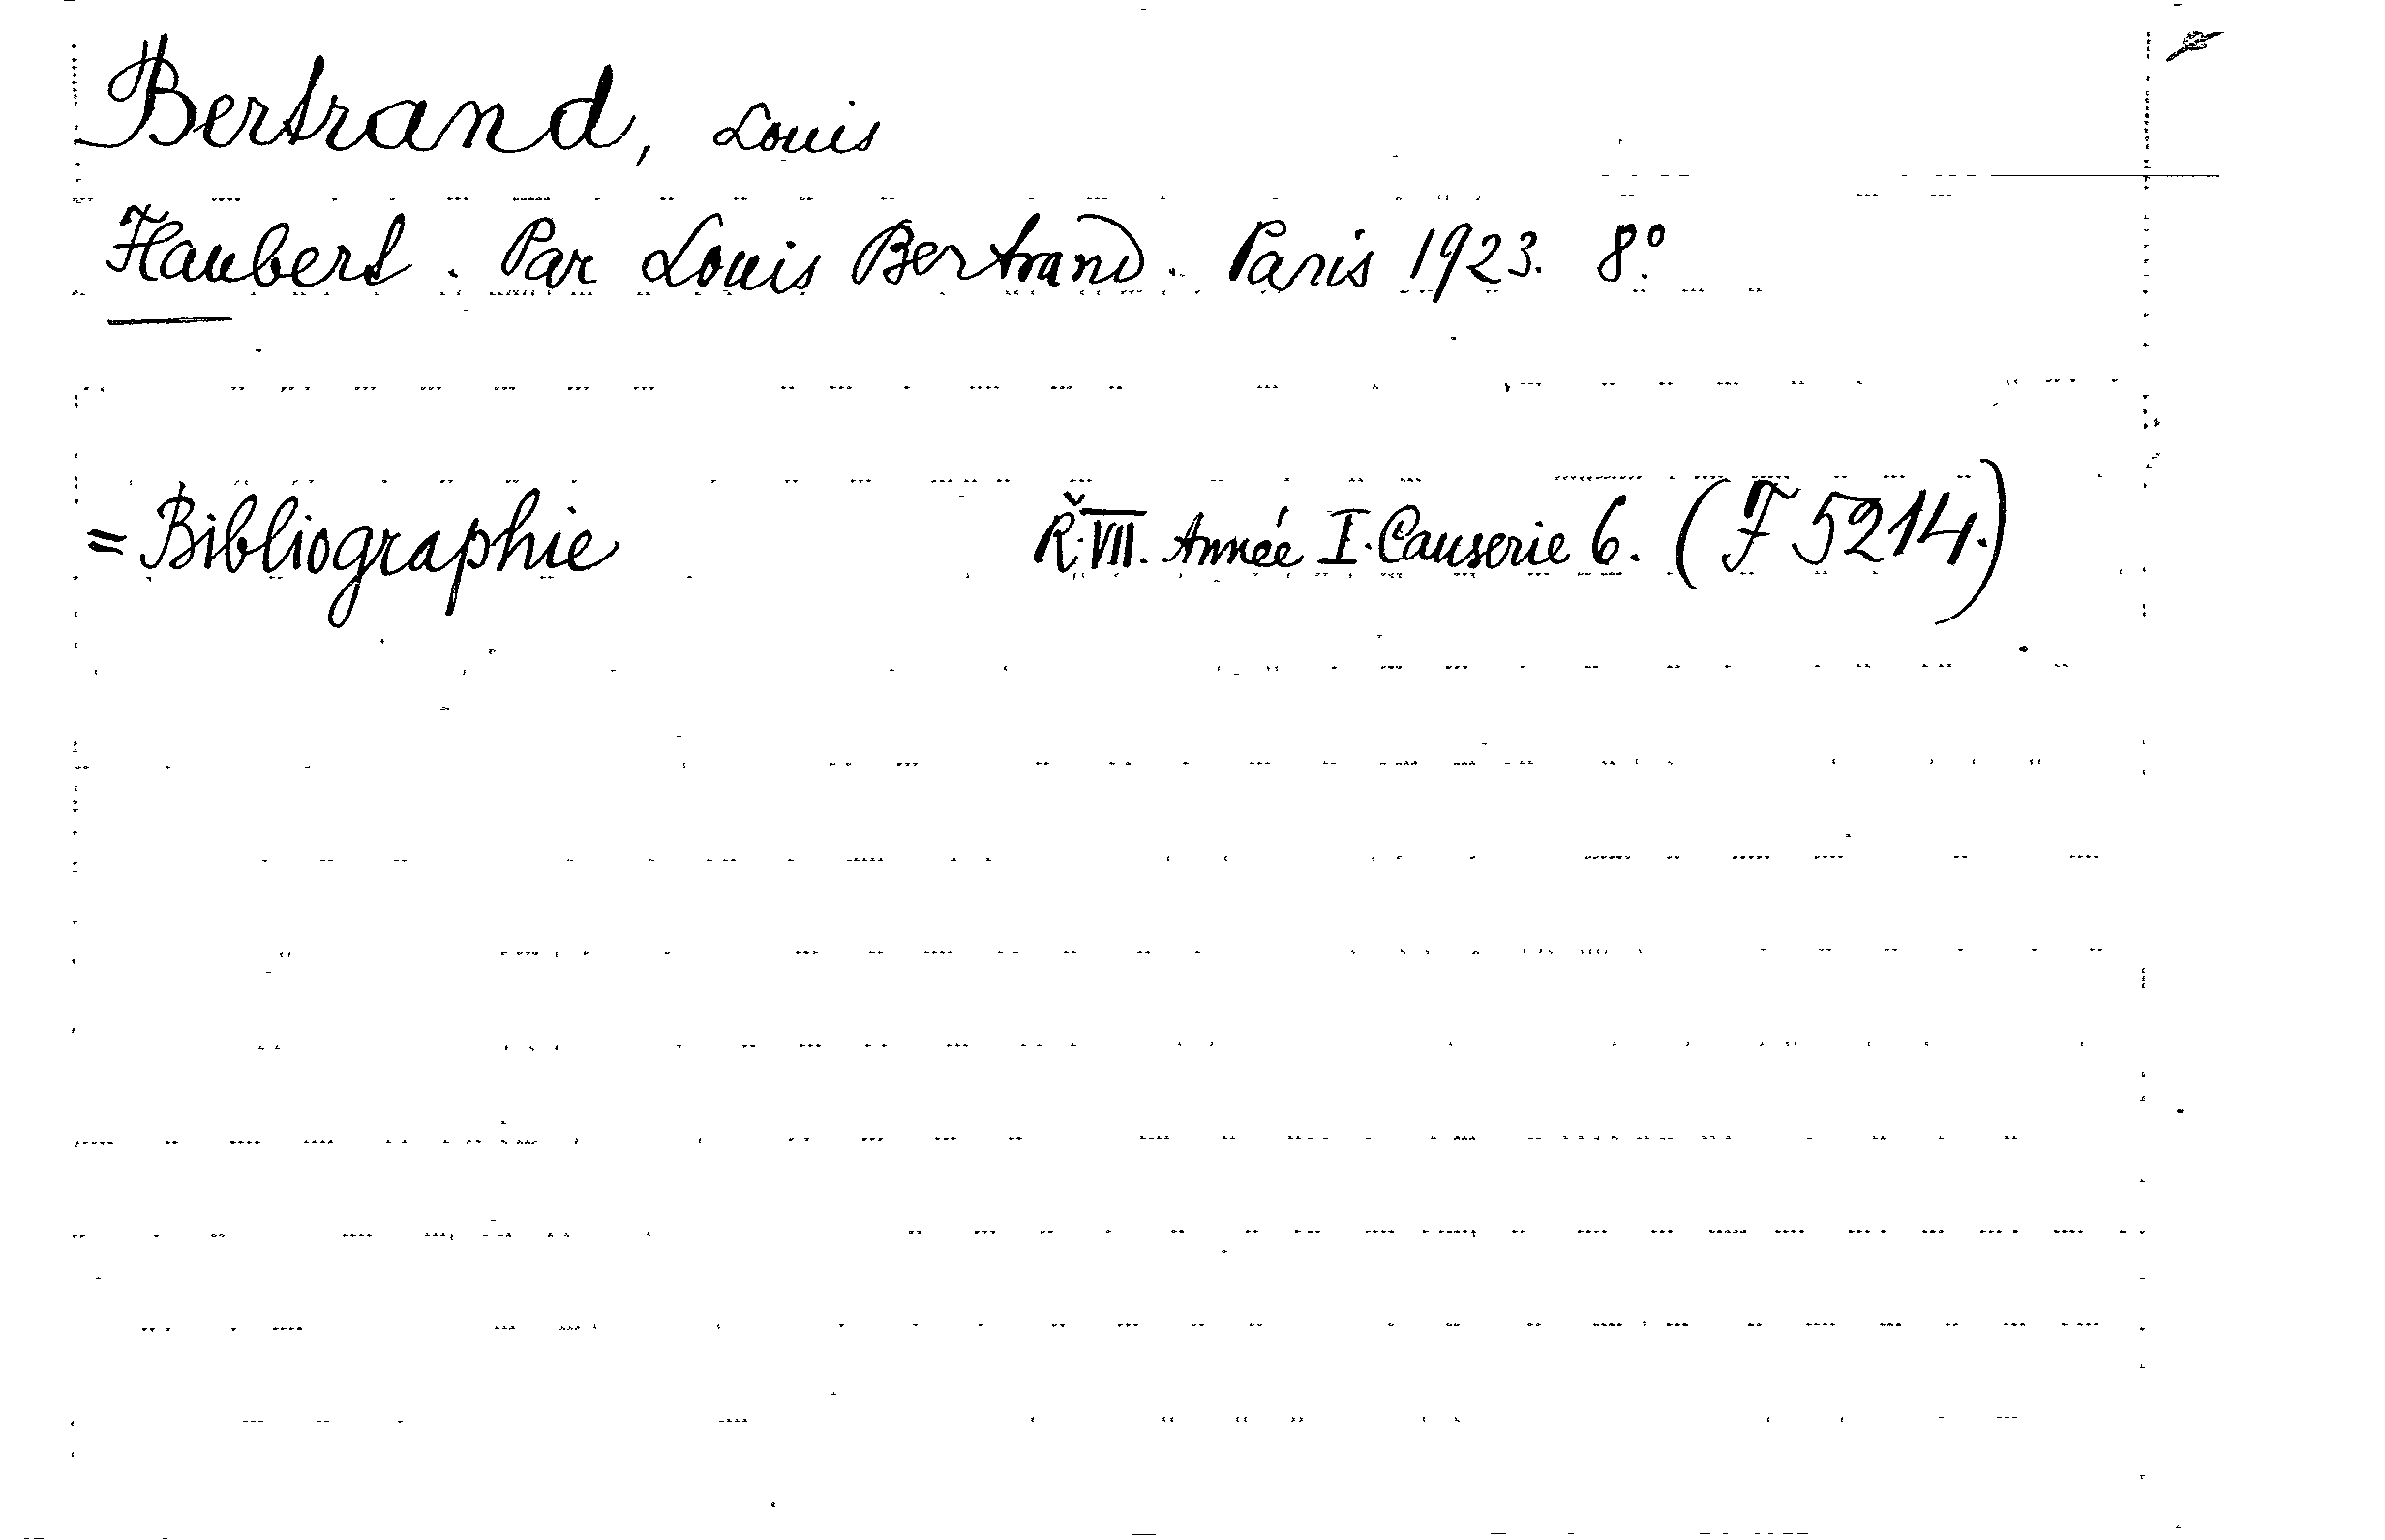 Bertrand, Louis
Flaubert. Par Louis Bertrand. Paris 1923. 8°.
= Bibliographie Ř. VII. Année I. Causerie 6. (F 5214.)